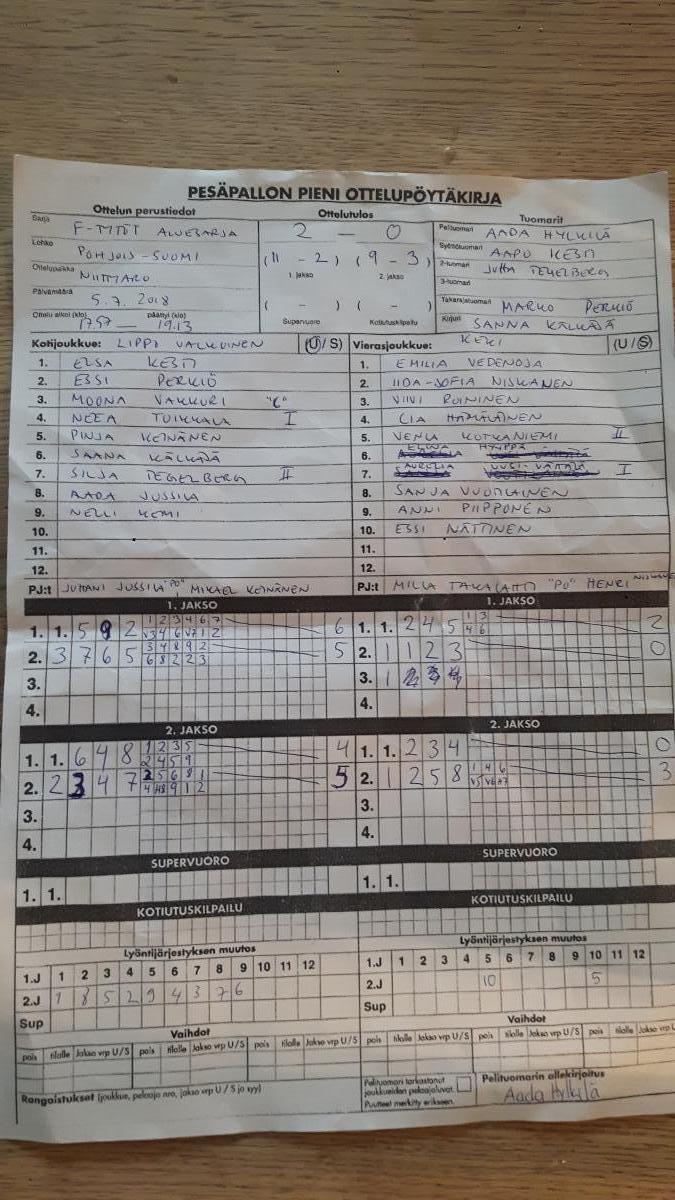 PESÄPALLON PIENI OTTELUPÖYTÄKIRJA
Ottelun perustiedot
Ottelutulos
Tuomarit
Sarja F-TYTÖT ALUESARJA
2 – 0
Pelituomari AADA HYLKILÄ
Lohko POHJOIS-SUOMI
(11 - 2) (9 - 3)
Syöttötuomari AAPO KESTI
Ottelupaikka NIITTYARO
1. jakso 2. jakso
2-tuomari JUTTA TEGELBERG
3-tuomari
Päivämäärä 5.7.2018
( - ) ( - )
Takarajatuomari MARKO PERKIÖ
Ottelu alkoi (klo) 17.57 — päättyi (klo) 19.13
Supervuoro Kotiutuskilpailu
Kirjuri SANNA KÄLKÄJÄ
Kotijoukkue: LIPPO VALKOINEN (U/S)
Vierasjoukkue: KEKI (U/S)
1. ELSA KESTI
2. ESSI PERKIÖ
3. MOONA VAKKURI "C"
4. NEEA TUIKKALA I
5. PINJA KEINÄNEN
6. SAANA KÄLKÄJÄ
7. SILJA TEGELBERG II
8. AADA JUSSILA
9. NELLI KEMI
10.
11.
12.
PJ:t JUHANI JUSSILA "PO", MIKAEL KEINÄNEN
1. EMILIA VEDENOJA
2. IIDA-SOFIA NISKANEN
3. VIIVI ROININEN
4. LIA HÄMÄLÄINEN
5. VENLA KOTKANIEMI II
6. ELINA HYYPPÄ
7. AURELIA UUSI-VÄTTÄLÄ I
8. SANJA VUOTILAINEN
9. ANNI PIIPPONEN
10. ESSI NÄTTINEN
11.
12.
PJ:t MILLA TAKALAHTI "PO" HENRI
1. JAKSO
1. 1. 5 9 2 1 2 3 4 6 7 6
V3 4 6 V7 1 2
2. 3 7 6 5 3 4 8 9 2 5
6 8 2 2 3
3.
4.
1. JAKSO
1. 1. 2 4 5 1 3 2
4 6
2. 1 1 2 3 0
3. 1
4.
2. JAKSO
1. 1. 6 4 8 1 2 3 5 4
2 4 5 9
2. 2 3 4 7 2 5 6 8 1 5
4 H8 9 1 2
3.
4.
2. JAKSO
1. 1. 2 3 4 0
2. 1 2 5 8 1 4 6 3
V5 V6 H7
3.
4.
SUPERVUORO
1. 1.
SUPERVUORO
1. 1.
KOTIUTUSKILPAILU
KOTIUTUSKILPAILU
Lyöntijärjestyksen muutos
1.J 1 2 3 4 5 6 7 8 9 10 11 12
2.J 1 8 5 2 9 4 3 7 6
Sup
Lyöntijärjestyksen muutos
1.J 1 2 3 4 5 6 7 8 9 10 11 12
2.J 10 5
Sup
Vaihdot
pois tilalle Jakso vrp U/S pois tilalle Jakso vrp U/S pois tilalle Jakso vrp U/S
Vaihdot
pois tilalle Jakso vrp U/S pois tilalle Jakso vrp U/S pois tilalle Jakso vrp U/S
Rangaistukset (joukkue, pelaaja nro, jakso vrp U / S ja syy)
Pelituomari tarkastanut joukkueiden pelaajaluvat.
Puutteet merkitty erikseen.
Pelituomarin allekirjoitus
Aada Hylkilä